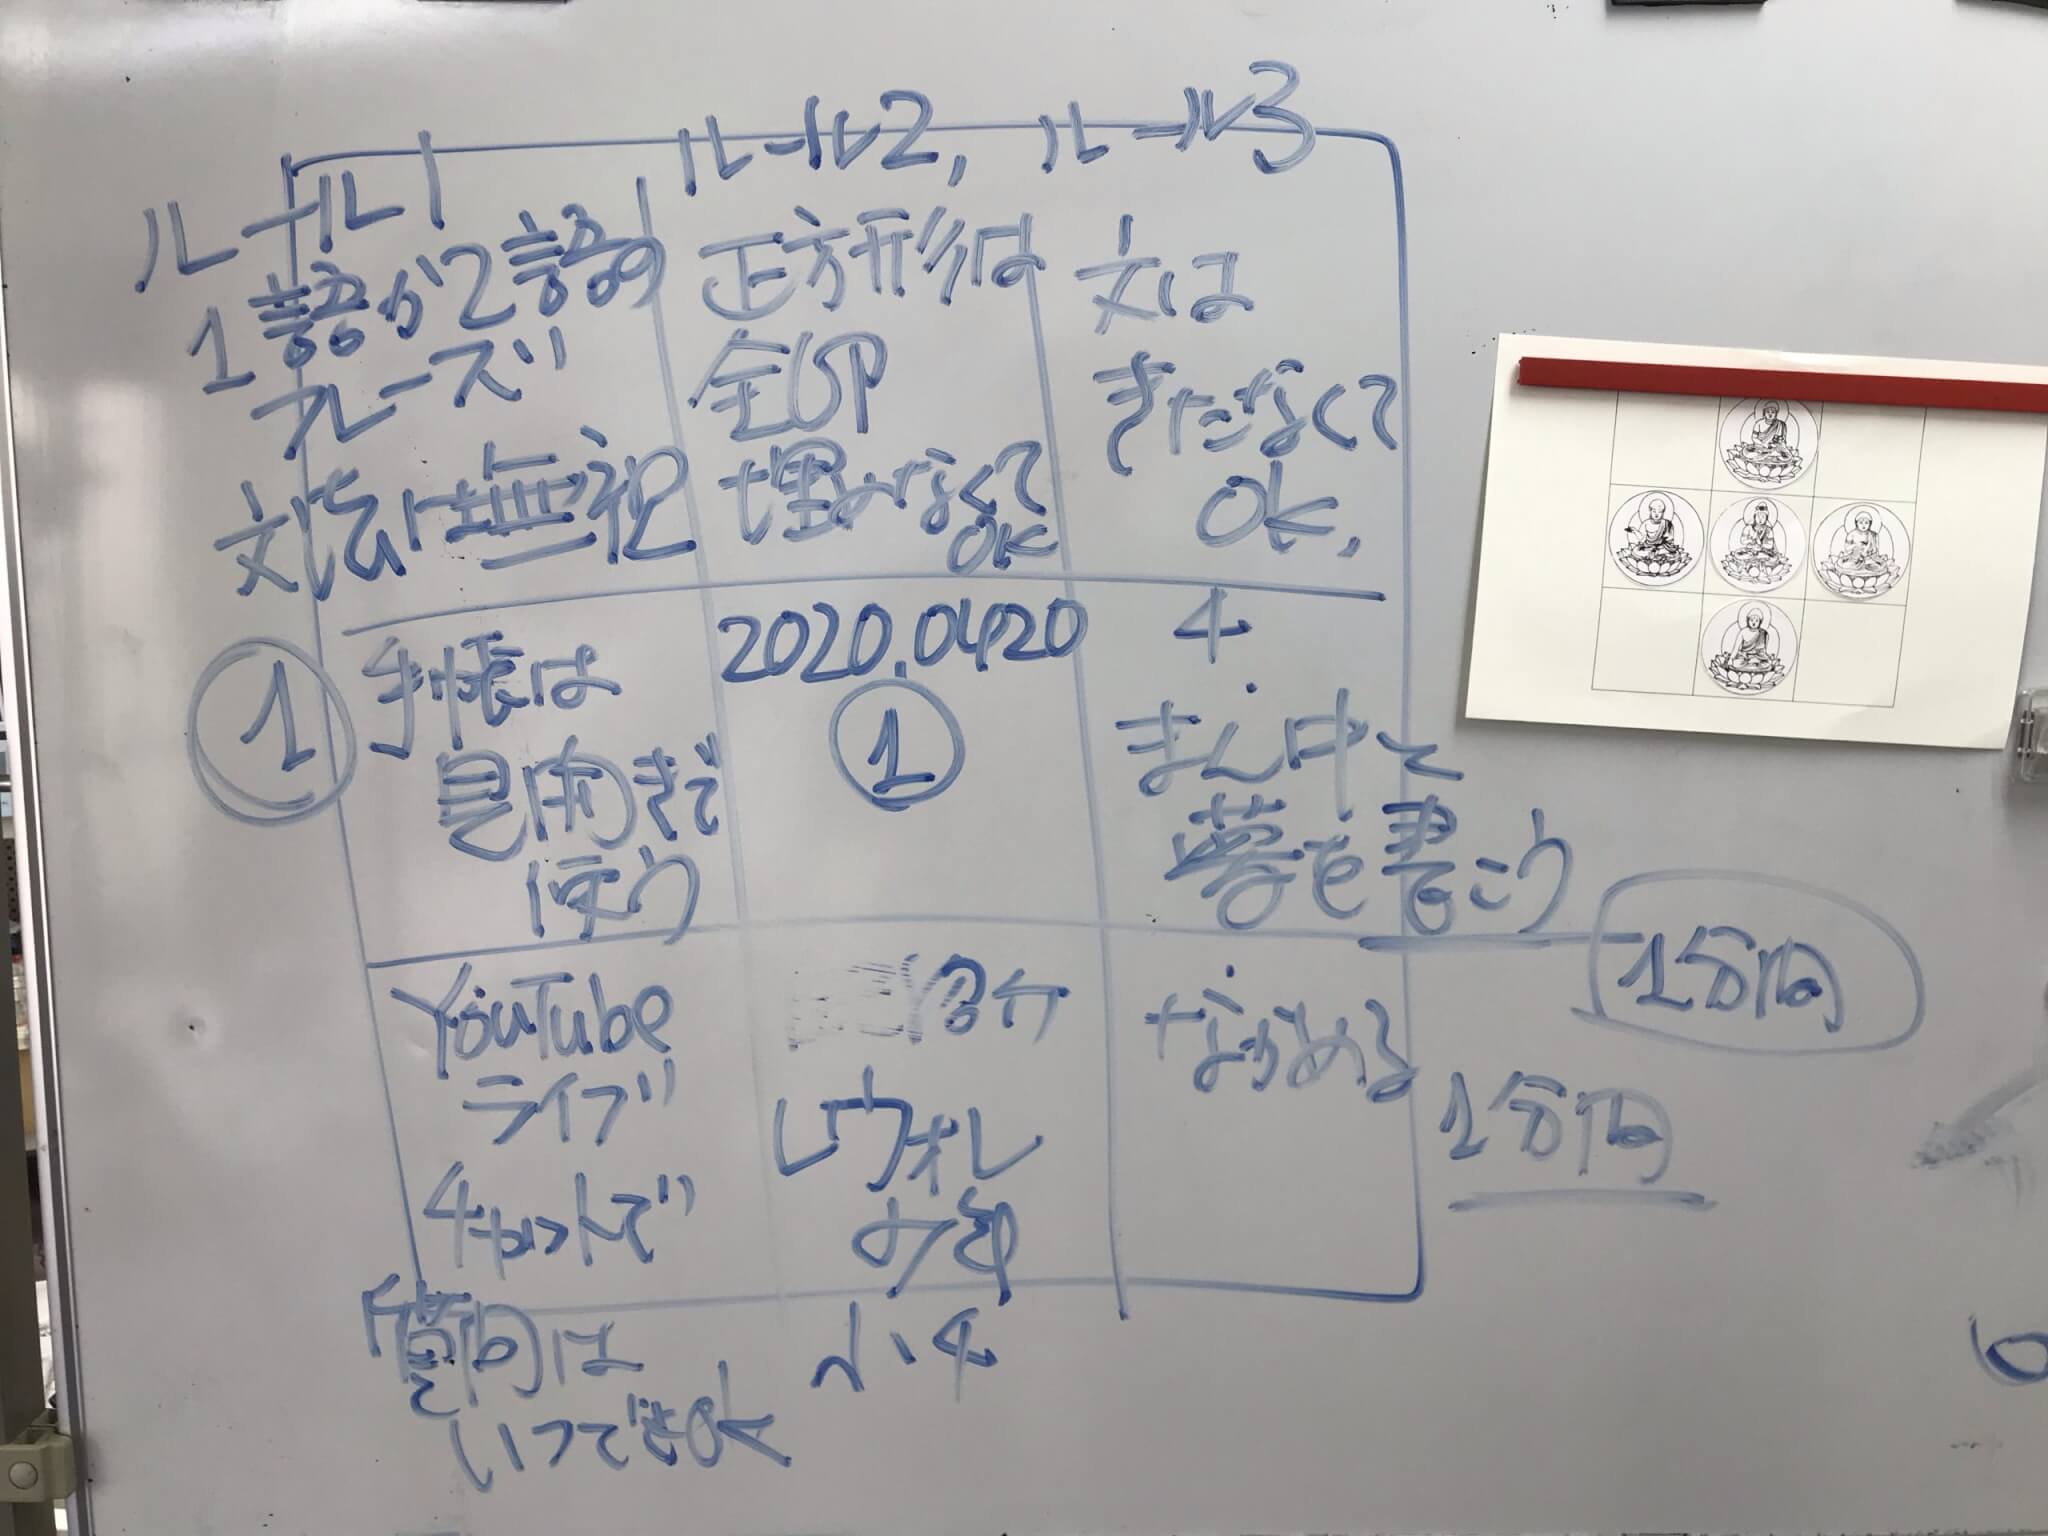 ルール1
1語か2語の
フレーズ
文法は無視
ルール2,
正方形は
全部
埋めなくて
OK
ルール3
文は
きたなくて
OK,
1
手帳は
見開きで
使う
2020.0420
1
4
まん中に
夢を書こう
1分間
YouTube
ライブ
チャットで
質問は
いつでもOK
紹介
ながめる
1分間